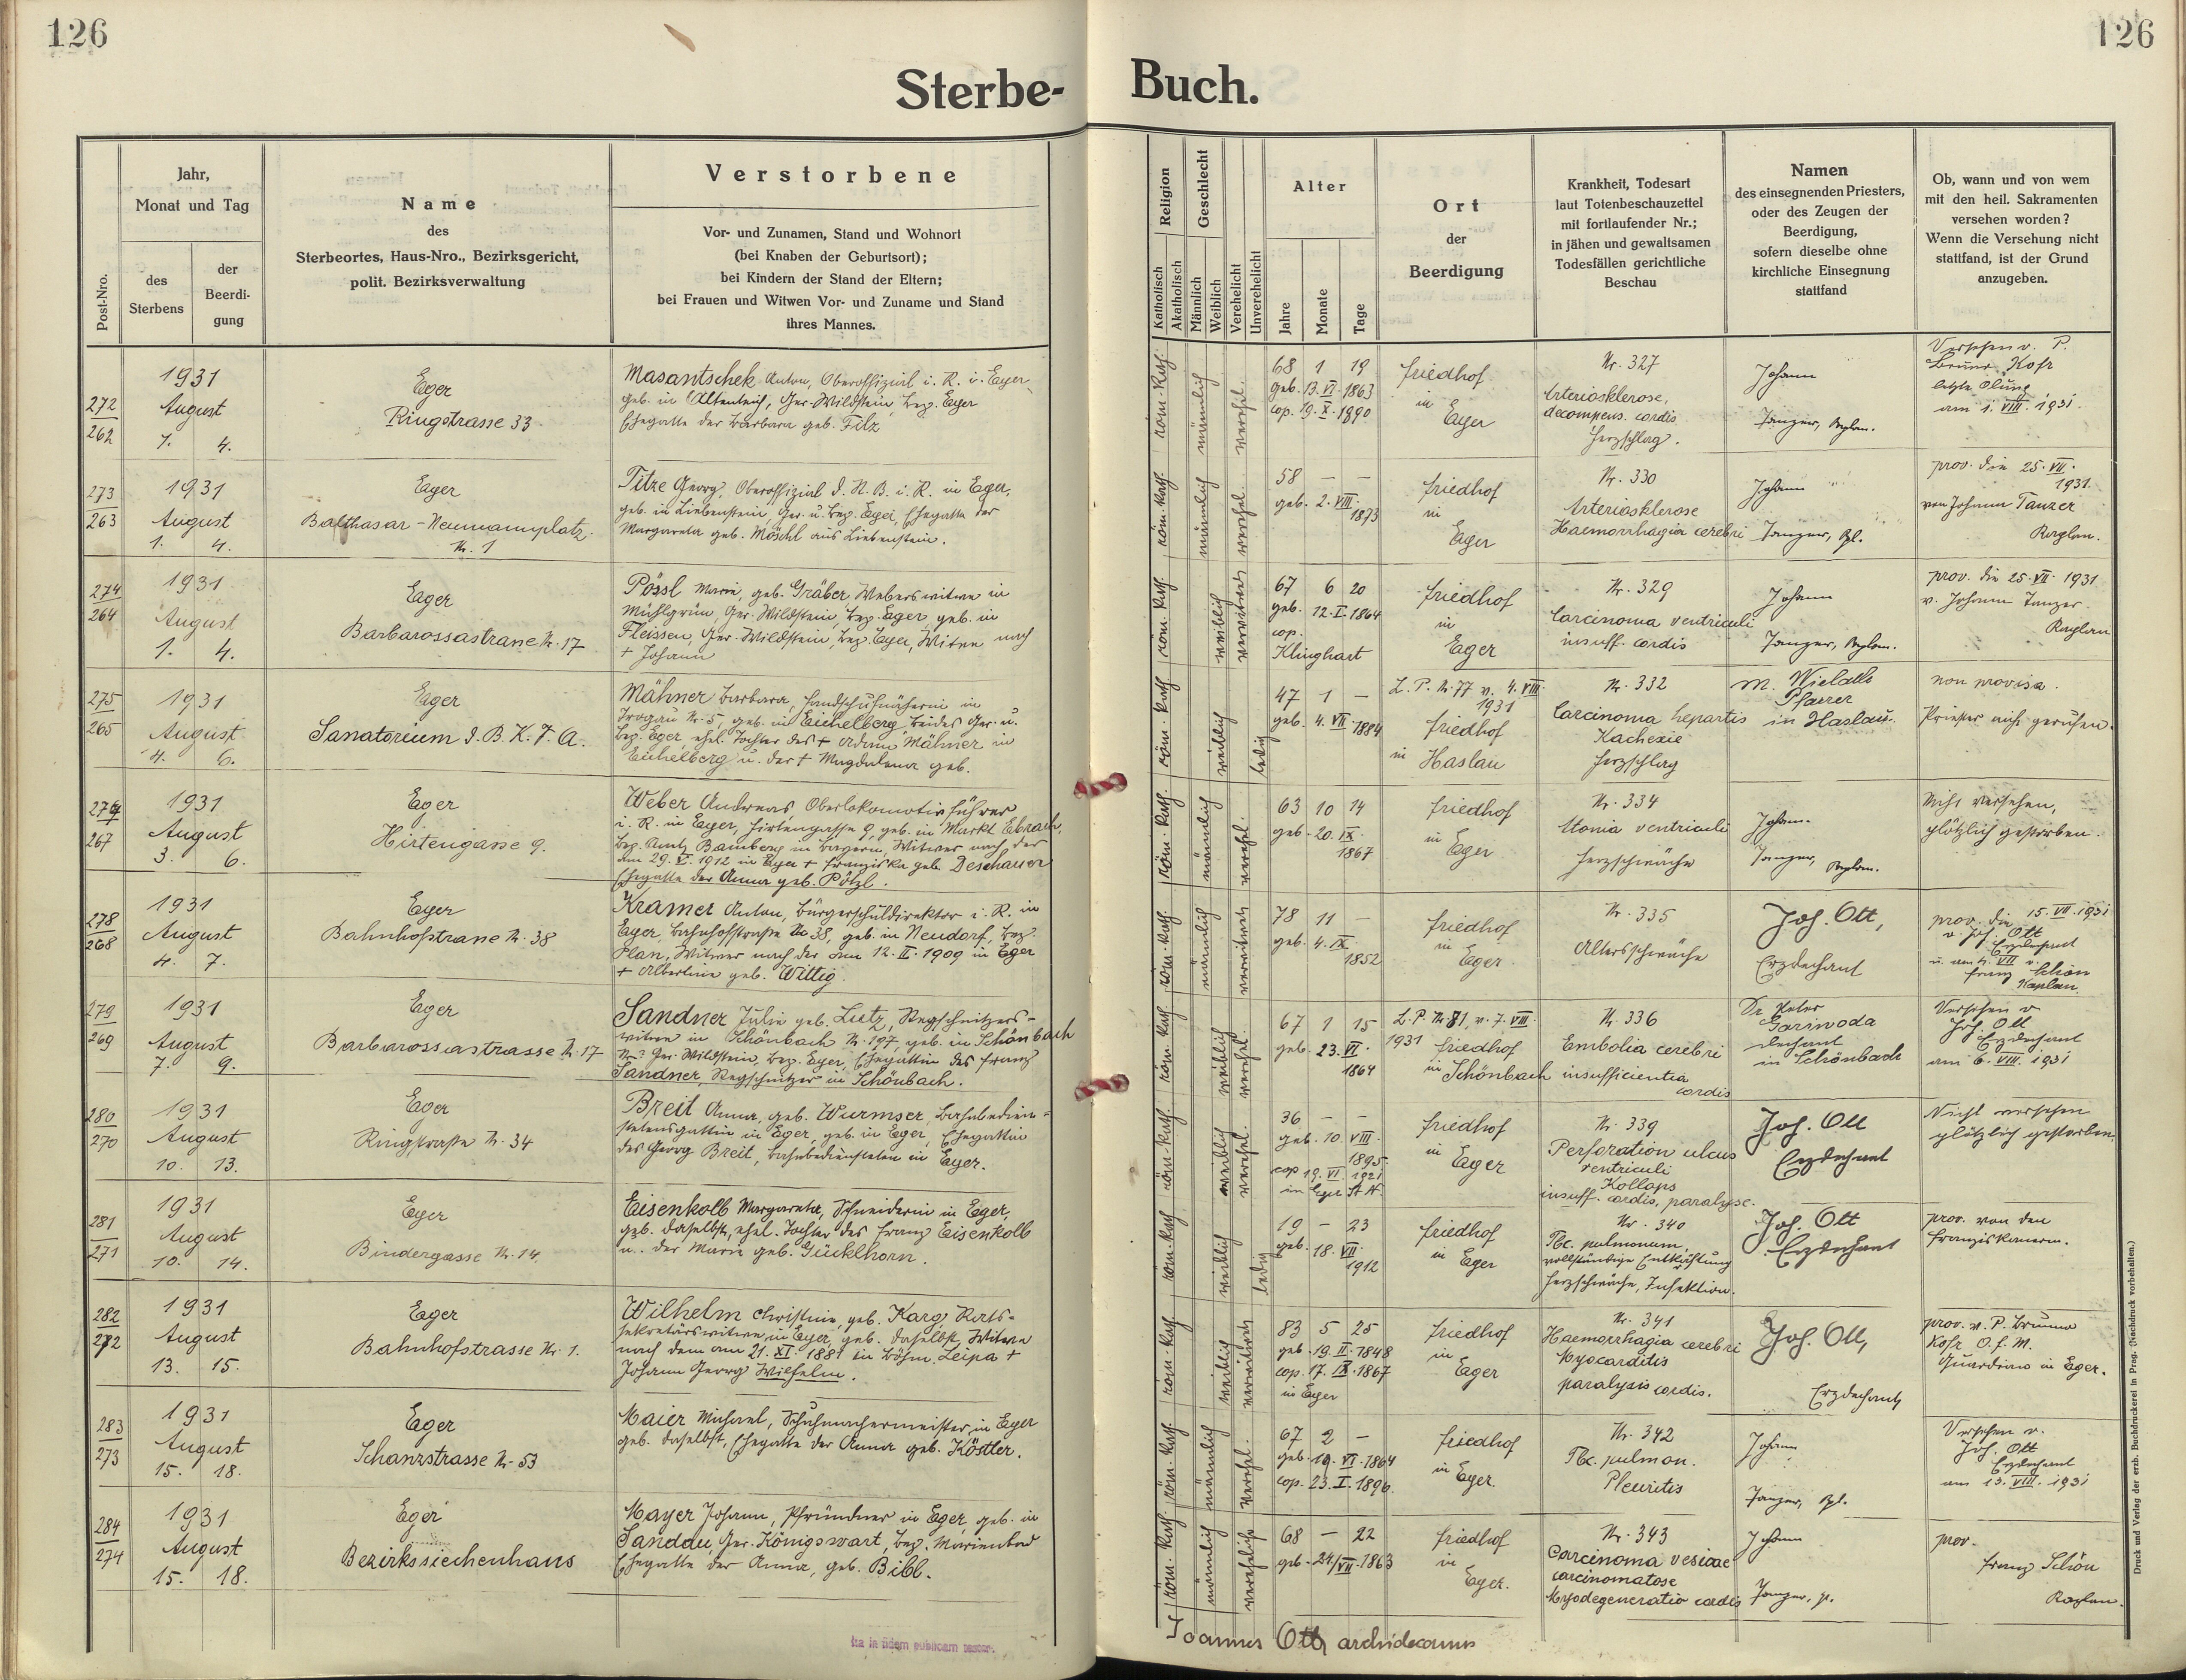 126
126
Sterbe-
Buch.
Post-Nro.
Jahr,
Monat und Tag
des
Sterbens
der
Beerdi-
gung
Name
des
Sterbeortes, Haus-Nro., Bezirksgericht,
polit. Bezirksverwaltung
Verstorbene
Vor- und Zunamen, Stand und Wohnort
(bei Knaben der Geburtsort);
bei Kindern der Stand der Eltern;
bei Frauen und Witwen Vor- und Zuname und Stand
ihres Mannes.
Religion
Katholisch
Akatholisch
Geschlecht
Männlich
Weiblich
Verehelicht
Unverehelicht
Alter
Jahre
Monate
Tage
Ort
der
Beerdigung
Krankheit, Todesart
laut Totenbeschauzettel
mit fortlaufender Nr.;
in jähen und gewaltsamen
Todesfällen gerichtliche
Beschau
Namen
des einsegnenden Priesters,
oder des Zeugen der
Beerdigung,
sofern dieselbe ohne
kirchliche Einsegnung
stattfand
Ob, wann und von wem
mit den heil. Sakramenten
versehen worden?
Wenn die Versehung nicht
stattfand, ist der Grund
anzugeben.
272
262
1931
August
4.
Eger
Ringstrasse 33
Masantschek Anton, Oberoffizial i. R. i. Eger
geb. in Altenteich, Ger. Wildstein, bez. Eger
Ehegatte der Barbara geb. Filz
röm. kath.
männlich
verehel.
68 1 19
geb. 13. VI. 1863
cop. 19. X. 1890
Friedhof
in
Eger
Nr. 327
Arteriosklerose,
decompens. cordis
Herzschlag.
Johann
Tanzer, Kaplan.
Versehen v. P.
Bruno Hofr
letzte Ölung
am 1. VIII. 1931.
273
263
1931
August
1. 4.
Eger
Balthasar-Neumannplatz
Nr. 1
Titze Georg, Oberoffizial d. St. B. i. R. in Eger,
geb. in Liebenstein, Ger. u. bez. Eger, Ehegatte der
Margareta geb. Möschl aus Liebenstein.
röm. kath.
männlich
verehel.
58 — —
geb. 2. VIII.
1873
Friedhof
in
Eger
Nr. 330
Arteriosklerose
Haemorrhagia cerebri
Johann
Tanzer, Kpl.
prov. die 25. VII.
1931
von Johann Tanzer
Kaplan.
274
264
1931
August
1. 4.
Eger
Barbarossastrasse Nr. 17
Pössl Marie, geb. Gräber Weberswitwe in
Mühlgrün, Ger. Wildstein, bez. Eger, geb. in
Fleissen, Ger. Wildstein, bez. Eger, Witwe nach
+ Johann
röm. kath.
weiblich
verwitwet
67 6 20
geb. 12. I. 1864
cop.
Klinghart
Friedhof
in
Eger
Nr. 329
Carcinoma ventriculi
insuff. cordis
Johann
Tanzer, Kaplan.
prov. die 25. VII. 1931
v. Johann Tanzer.
Kaplan
275
265
1931
August
4. 6.
Eger
Sanatorium d. B. K. F. A.
Mähner Barbara, Handschuhnäherin in
Trogau Nr. 5, geb. in Eichelberg beides Ger. u.
bez. Eger ehel. Tochter des + Adam Mähner in
Eichelberg u. der + Magdalena geb.
röm. kath.
weiblich
ledig
47 1 —
geb. 4. VII. 1884
L. P. Nr. 77 v. 4. VIII.
1931
Friedhof
in Haslau
Nr. 332
Carcinoma hepartis
Kachexie
Herzschlag
Pfarrer
in Haslau.
non provisa.
Priester nicht gerufen.
267
1931
August
3. 6.
Eger
Hirtengasse 9.
Weber Andreas, Oberlokomotivführer
i. R. in Eger, Hirtengasse 9, geb. in Markt Ebrach,
bez. Amt Bamberg in Bayern, Witwer nach der
am 29. V. 1912 in Eger + Franziska geb. Deschauer
Ehegatte der Anna geb. Pötzl.
röm. kath.
männlich
verehel.
63 10 14
geb. 20. IX.
1867
Friedhof
in
Eger
Nr. 334
Atonia ventriculi
Herzschwäche
Johann
Tanzer, Kaplan.
Nicht versehen,
plötzlich gestorben.
278
268
1931
August
4. 7.
Eger
Bahnhofstrasse Nr. 38
Kramer Anton, Bürgerschuldirektor i. R. in
Eger, Bahnhofstraße Nr. 38, geb. in Neudorf, bez.
Plan, Witwer nach der am 12. II. 1909 in Eger
+ Albertine geb. Wittig.
röm. kath.
männlich
verwitwet
78 11 —
geb. 4. IX.
1852
Friedhof
in
Eger.
Nr. 335
Altersschwäche
Joh. Ott,
Erzdechant
prov. die 15. VII. 1931
v. Joh. Ott
Erzdechant
u. am 4. VIII v.
Franz Schön
Kaplan.
279
269
1931
August
7. 9.
Eger
Barbarossastrasse Nr. 17
Sandner Julie geb. Lutz, Stegschnitzers-
witwe in Schönbach Nr. 197 geb. in Schönbach
Nr. ? Ger. Wildstein, bez. Eger, Ehegattin des Franz
Sandner, Stegschnitzer in Schönbach.
röm. kath.
weiblich
verehel.
67 1 15
geb. 23. VI.
1864
L. P. Nr. 81, v. 7. VIII.
1931 Friedhof
in Schönbach
Nr. 336
Embolia cerebri
insufficientia
cordis
Dr. Peter
Dechant
in Schönbach
Versehen v.
Joh. Ott
Erzdechant
am 6. VIII. 1931
280
270
1931
August
10. 13.
Eger
Ringstraße Nr. 34
Breit Anna, geb. Wurmser, Bahnbedien-
stetensgattin in Eger, geb. in Eger, Ehegattin
des Georg Breit, Bahnbediensteten in Eger.
röm. kath.
weiblich
verehel.
36 — —
geb. 10. VIII.
1895.
cop 19. VI. 1921
in Eger St. N.
Friedhof
in Eger
Nr. 339
Perforation ulcus
ventriculi
Kollaps
insuff. cordis, paralyse.
Joh. Ott
Erzdechant
Nicht versehen
plötzlich gestorben.
281
271
1931
August
10. 14.
Eger
Bindergasse Nr. 14.
Eisenkolb Margareta, Schneiderin in Eger,
geb. daselbst, ehel. Tochter des Franz Eisenkolb
u. der Marie geb. Gücklhorn.
röm. kath.
weiblich
ledig
19 — 23
geb. 18. VII.
1912
Friedhof
in Eger
Nr. 340
Tbc. pulmonum,
vollständige Entkräftung
Herzschwäche, Infektion.
Joh. Ott
Erzdechant
prov. von den
Franziskanern.
282
272
1931
August
13. 15.
Eger
Bahnhofstrasse Nr. 1.
Wilhelm Christine, geb. Karg, Rats-
sekretärswitwe, in Eger, geb. daselbst, Witwe
nach dem am 21. XI. 1881 in Böhm. Leipa +
Johann Georg Wilhelm.
röm. kath.
weiblich
verwitwet
83 5 25
geb. 19. II. 1848
cop. 17. IX. 1867
in Eger
Friedhof
in
Eger
Nr. 341
Haemorrhagia cerebri
Myocarditis
paralysis cordis.
Joh. Ott,
Erzdechant
prov. v. P. Bruno
Hofr. O. F. M.
Guardian in Eger.
283
273
1931
August
15. 18.
Eger
Schanzstrasse Nr. 53
Maier Michael, Schuhmachermeister, in Eger
geb. daselbst, Ehegatte der Anna geb. Köstler.
röm. kath.
männlich
verehel.
67 2 —
geb. VI. 1864
cop. 23. I. 1896.
Friedhof
in Eger.
Nr. 342
Tbc. pulmon.
Pleuritis
Johann
Tanzer, Kpl.
Versehen v.
Joh. Ott
Erzdechant
am 13. VIII. 1931
284
274
1931
August
15. 18.
Eger
Bezirkssiechenhaus
Mayer Johann, Pfründner in Eger, geb. in
Sandau, Ger. Königswart, bez. Marienbad
Ehegatte der Anna, geb. Bibl.
röm. kath.
männlich
verehelicht
68 — 22
geb. 24/VII. 1863
Friedhof
in
Eger.
Nr. 343
Carcinoma vesicae
carcinomatose
Myodegeneratio cordis
Johann
Tanzer,
prov.
Franz Schön
Kaplan.
Joannes Ott, archidecanus
Ita in fidem publicam testor.
Druck und Verlag der erzb. Buchdruckerei in Prag. (Nachdruck vorbehalten.)